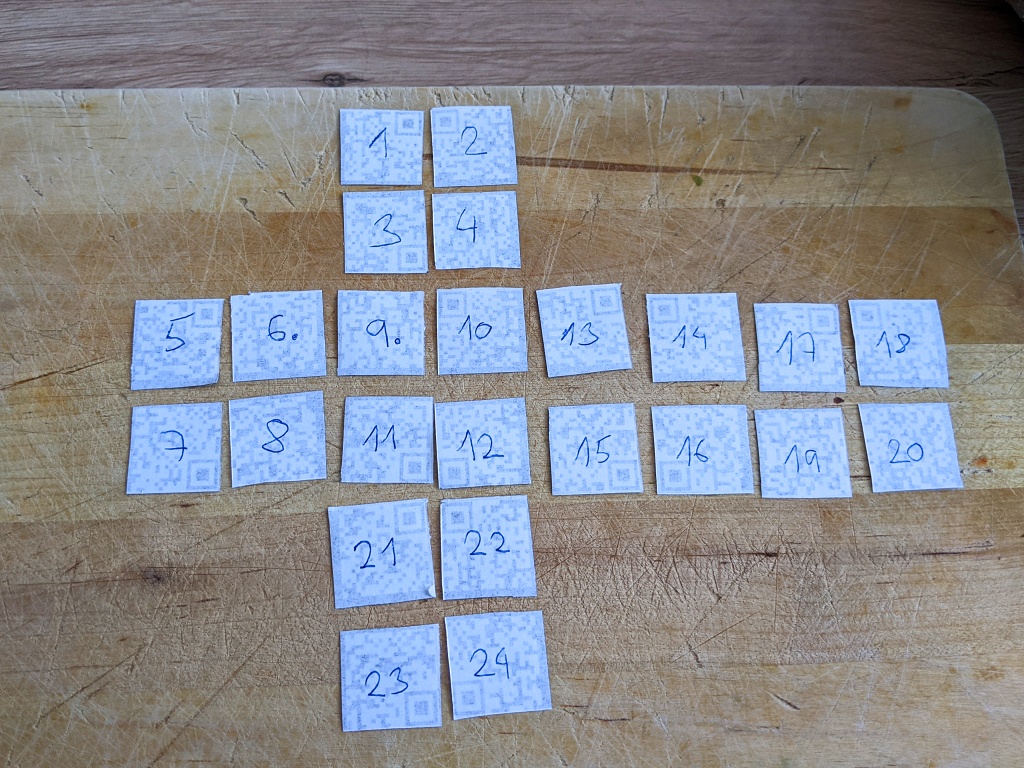 1 2
3 4
5 6. 9. 10 13 14 17 18
7 8 11 12 15 16 19 20
21 22
23 24